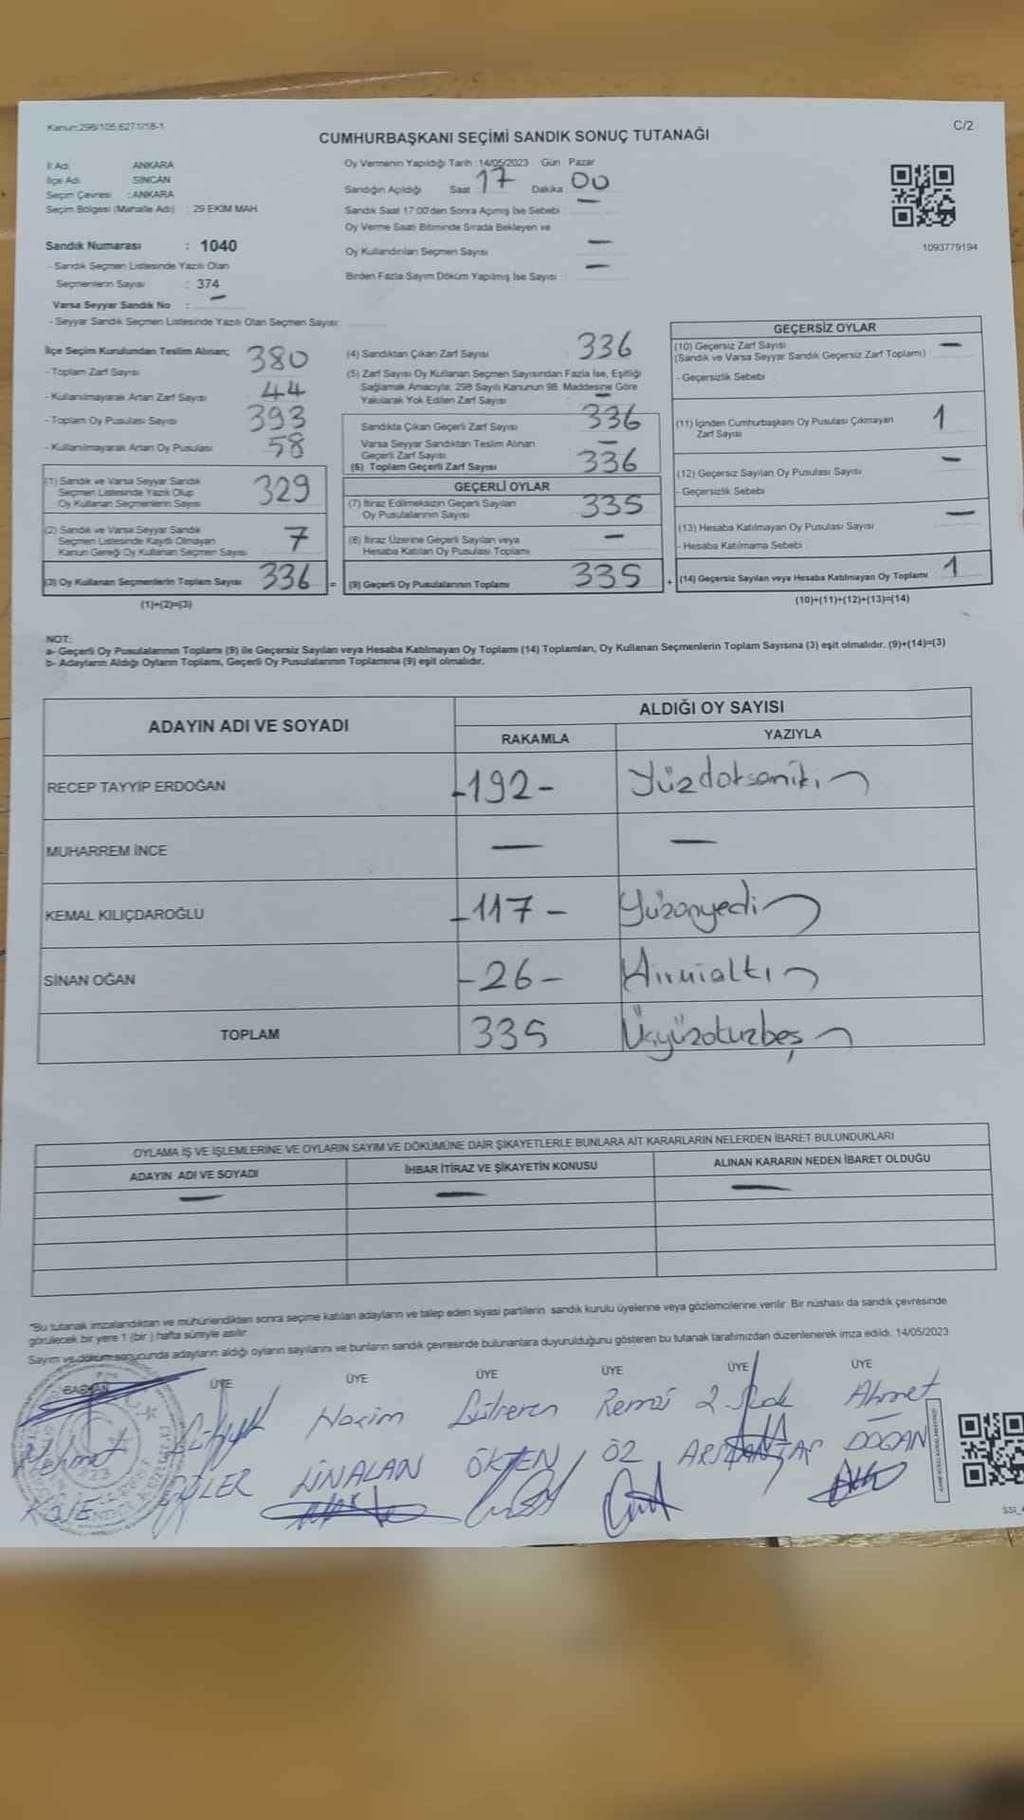 Kanun:298/105,6271/18-1
C/2
CUMHURBAŞKANI SEÇİMİ SANDIK SONUÇ TUTANAĞI
İl Adı ANKARA
İlçe Adı SİNCAN
Seçim Çevresi : ANKARA
Seçim Bölgesi (Mahalle Adı) : 29 EKİM MAH
Sandık Numarası : 1040
- Sandık Seçmen Listesinde Yazılı Olan
Seçmenlerin Sayısı : 374
Varsa Seyyar Sandık No : —
- Seyyar Sandık Seçmen Listesinde Yazılı Olan Seçmen Sayısı:
Oy Vermenin Yapıldığı Tarih :14/05/2023 Gün Pazar
Sandığın Açıldığı Saat 17 Dakika 00
Sandık Saat 17:00'den Sonra Açılmış İse Sebebi : —
Oy Verme Saati Bitiminde Sırada Bekleyen ve
Oy Kullandırılan Seçmen Sayısı —
Birden Fazla Sayım Döküm Yapılmış İse Sayısı : —
1093779194
İlçe Seçim Kurulundan Teslim Alınan;
- Toplam Zarf Sayısı 380
- Kullanılmayarak Artan Zarf Sayısı 44
- Toplam Oy Pusulası Sayısı 393
- Kullanılmayarak Artan Oy Pusulası 58
(1) Sandık ve Varsa Seyyar Sandık
Seçmen Listesinde Yazılı Olup
Oy Kullanan Seçmenlerin Sayısı 329
(2) Sandık ve Varsa Seyyar Sandık
Seçmen Listesinde Kayıtlı Olmayan
Kanun Gereği Oy Kullanan Seçmen Sayısı 7
(3) Oy Kullanan Seçmenlerin Toplam Sayısı 336 =
(1)+(2)=(3)
(4) Sandıktan Çıkan Zarf Sayısı 336
(5) Zarf Sayısı Oy Kullanan Seçmen Sayısından Fazla İse, Eşitliği
Sağlamak Amacıyla; 298 Sayılı Kanunun 98. Maddesine Göre
Yakılarak Yok Edilen Zarf Sayısı —
Sandıkta Çıkan Geçerli Zarf Sayısı 336
Varsa Seyyar Sandıktan Teslim Alınan
Geçerli Zarf Sayısı —
(6) Toplam Geçerli Zarf Sayısı 336
GEÇERLİ OYLAR
(7) İtiraz Edilmeksizin Geçerli Sayılan
Oy Pusulalarının Sayısı 335
(8) İtiraz Üzerine Geçerli Sayılan veya
Hesaba Katılan Oy Pusulası Toplamı —
(9) Geçerli Oy Pusulalarının Toplamı 335 +
GEÇERSİZ OYLAR
(10) Geçersiz Zarf Sayısı —
(Sandık ve Varsa Seyyar Sandık Geçersiz Zarf Toplamı)
- Geçersizlik Sebebi
(11) İçinden Cumhurbaşkanı Oy Pusulası Çıkmayan
Zarf Sayısı 1
(12) Geçersiz Sayılan Oy Pusulası Sayısı —
- Geçersizlik Sebebi
(13) Hesaba Katılmayan Oy Pusulası Sayısı —
- Hesaba Katılmama Sebebi
(14) Geçersiz Sayılan veya Hesaba Katılmayan Oy Toplamı 1
(10)+(11)+(12)+(13)=(14)
NOT:
a- Geçerli Oy Pusulalarının Toplamı (9) ile Geçersiz Sayılan veya Hesaba Katılmayan Oy Toplamı (14) Toplamları, Oy Kullanan Seçmenlerin Toplam Sayısına (3) eşit olmalıdır. (9)+(14)=(3)
b- Adayların Aldığı Oyların Toplamı, Geçerli Oy Pusulalarının Toplamına (9) eşit olmalıdır.
ADAYIN ADI VE SOYADI ALDIĞI OY SAYISI
RAKAMLA YAZIYLA
RECEP TAYYİP ERDOĞAN -192- Yüzdoksaniki
MUHARREM İNCE — —
KEMAL KILIÇDAROĞLU -117- Yüzonyedi
SİNAN OĞAN -26- Yirmialtı
TOPLAM 335 Üçyüzotuzbeş
OYLAMA İŞ VE İŞLEMLERİNE VE OYLARIN SAYIM VE DÖKÜMÜNE DAİR ŞİKAYETLERLE BUNLARA AİT KARARLARIN NELERDEN İBARET BULUNDUKLARI
ADAYIN ADI VE SOYADI İHBAR İTİRAZ VE ŞİKAYETİN KONUSU ALINAN KARARIN NEDEN İBARET OLDUĞU
— — —
*Bu tutanak imzalandıktan ve mühürlendikten sonra seçime katılan adayların ve talep eden siyasi partilerin sandık kurulu üyelerine veya gözlemcilerine verilir. Bir nüshası da sandık çevresinde
görülecek bir yere 1 (bir ) hafta süreyle asılır.
Sayım ve döküm sonucunda adayların aldığı oyların sayılarını ve bunların sandık çevresinde bulunanlara duyurulduğunu gösteren bu tutanak tarafımızdan düzenlenerek imza edildi. 14/05/2023
BAŞKAN ÜYE ÜYE ÜYE ÜYE ÜYE ÜYE
Mehmet Hakim Gülseren Remzi Ahmet
KÖSE GÜLER ÜNALAN ÖKTEN ÖZ ARSLANTAŞ DOĞAN